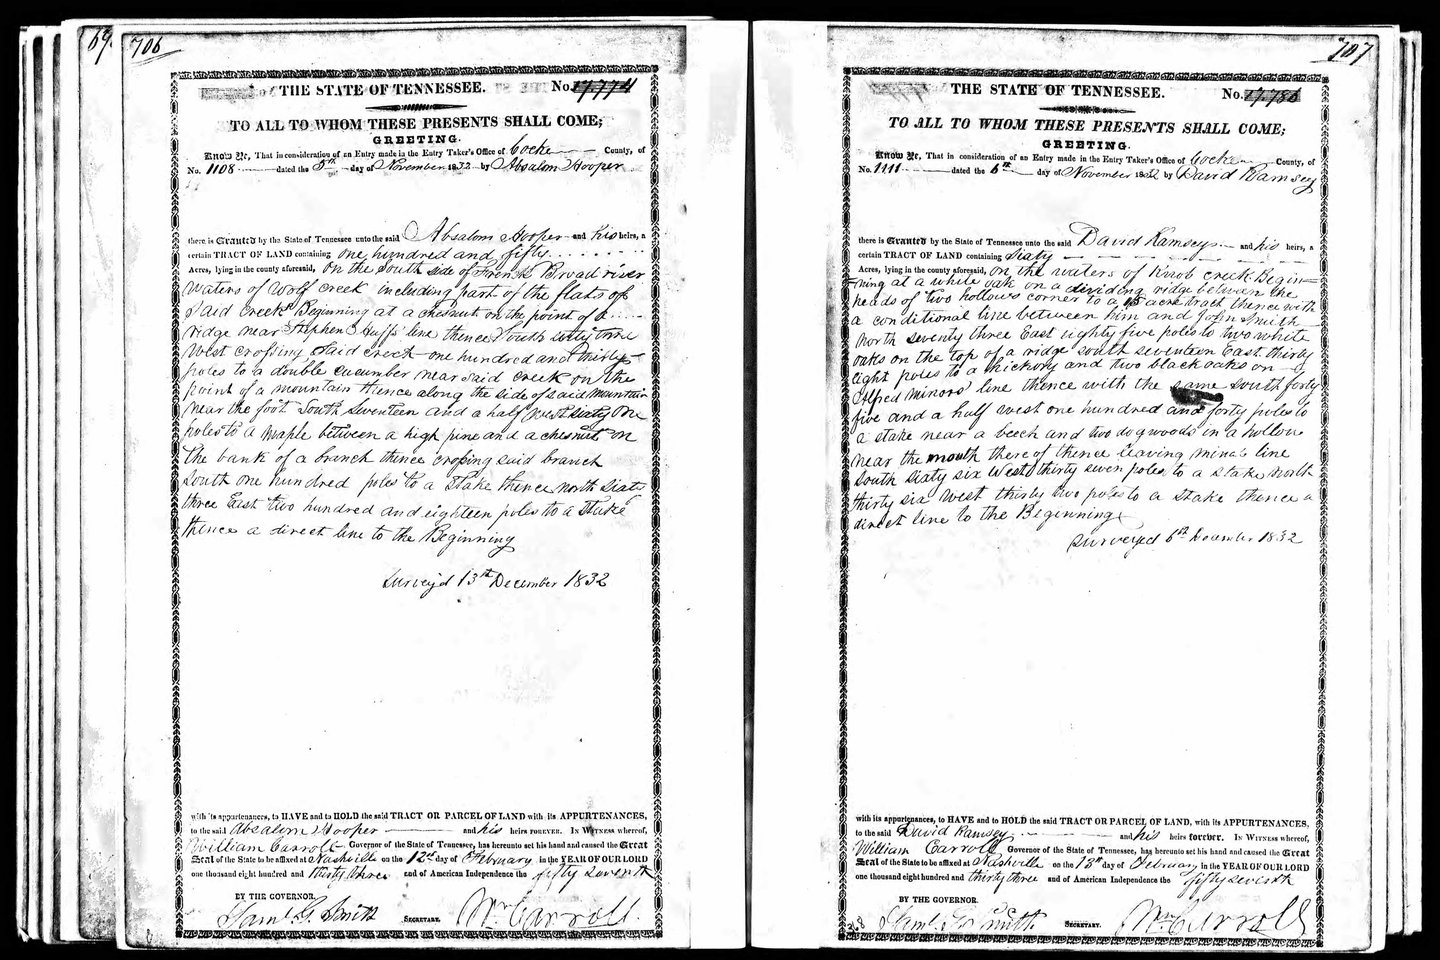 69.
706
THE STATE OF TENNESSEE. No. 17,774
TO ALL TO WHOM THESE PRESENTS SHALL COME;
GREETING.
Know Ye, That in consideration of an Entry made in the Entry Taker's Office of Cocke County, of
No. 1108 dated the 5th day of November 1832 by Absalom Hooper
there is Granted by the State of Tennessee unto the said Absalom Hooper and his heirs, a
certain TRACT OF LAND containing one hundred and fifty
Acres, lying in the county aforesaid, on the South side of French Broad river
waters of Wolf creek including part of the flats of
Said creek Beginning at a chesnut on the point of a
ridge near Stephen Huffs line thence South sixty nine
West crossing Said creek one hundred and thirty
poles to a double cucumber near said creek on the
point of a mountain thence along the side of said mountain
near the foot South seventeen and a half West sixty one
poles to a maple between a high pine and a chesnut on
the bank of a branch thence crossing said branch
South one hundred poles to a Stake thence north Sixty
three East two hundred and eighteen poles to a Stake
thence a direct line to the Beginning
Survey'd 13th December 1832
with its appurtenances, to HAVE and to HOLD the said TRACT OR PARCEL OF LAND with its APPURTENANCES,
to the said Absalom Hooper and his heirs FOREVER. IN WITNESS whereof,
William Carroll Governor of the State of Tennessee, has hereunto set his hand and caused the Great
Seal of the State to be affixed at Nashville on the 12th day of February in the YEAR OF OUR LORD
one thousand eight hundred and thirty three and of American Independence the fifty seventh
BY THE GOVERNOR.
Saml. G. Smith SECRETARY. Wm Carroll.
707
THE STATE OF TENNESSEE. No. 17.786
TO ALL TO WHOM THESE PRESENTS SHALL COME;
GREETING.
Know Ye, That in consideration of an Entry made in the Entry Taker's Office of Cocke County, of
No. 1111 dated the 6th day of November 1832 by David Ramsey
there is Granted by the State of Tennessee unto the said David Ramsey and his heirs, a
certain TRACT OF LAND containing Sixty
Acres, lying in the county aforesaid, on the waters of Knob creek Begin-
ning at a white oak on a dividing ridge between the
heads of two hollows corner to a 15 acre tract thence with
a conditional line between him and John Smith
North seventy three East eighty five poles to two white
oaks on the top of a ridge south seventeen East thirty
eight poles to a hickory and two black oaks on
Alfred Minors line thence with the same south forty
five and a half west one hundred and forty poles to
a stake near a beech and two dogwoods in a hollow
near the mouth there of thence leaving mine's line
South Sixty six West thirty seven poles to a stake North
thirty six West thirty two poles to a stake thence a
direct line to the Beginning
Surveyed 6th December 1832
with its appurtenances, to HAVE and to HOLD the said TRACT OR PARCEL OF LAND, with its APPURTENANCES,
to the said David Ramsey and his heirs forever. IN WITNESS whereof,
William Carroll Governor of the State of Tennessee, has hereunto set his hand and caused the Great
Seal of the State to be affixed at Nashville on the 13th day of February in the YEAR OF OUR LORD
one thousand eight hundred and thirty three and of American Independence the fifty seventh
BY THE GOVERNOR.
Saml. G. Smith SECRETARY. Wm Carroll